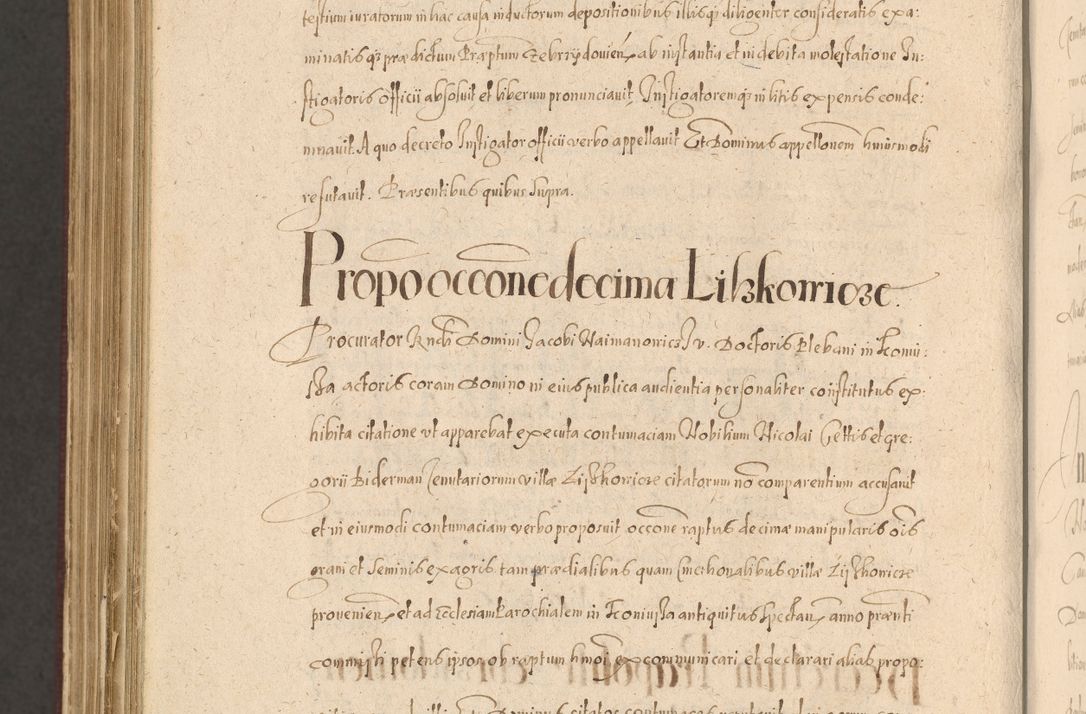 testium iuratorum in hac causa inductorum depositionibus illisq3 diligenter consideratis exa:
minatisq3 praedictum Praeptum Zebrzydovien ab instantia et indebita molestatione In:
stigatoris officii absolvit et liberum pronunciavit, Instigatoremq3 in litis expensis conde:
mnavit. A quo decreto Instigator officii verbo appellavit Et Dominus appellonem huiusmodi
refutavit. Praesentibus quibus supra.
Propo occone decima Liszkowicze.
Procurator Rndi Domini Jacobi Naimanowicz J v. Doctoris Plebani in
actoris coram Domino in eius publica audientia personaliter constitutus ex:
hibita citatione ut apparebat executa contumaciam Nobilium Nicolai Gettis et Gre:
gorii Biderman Tenutariorum villae Liszkowicze citatorum no comparentium accusavit
et in eiusmodi contumaciam verbo proposuit occone raptus decimae manipularis ois
grani et seminis ex agris tam praedialibus quam Cmethonalibus villae Liszkowicze
provenien et ad Ecclesiam Parochialem in antiquitus spectan anno praenti
commissi petens ipsos ob raptum hmoi excommunicari et declarari alias propo: